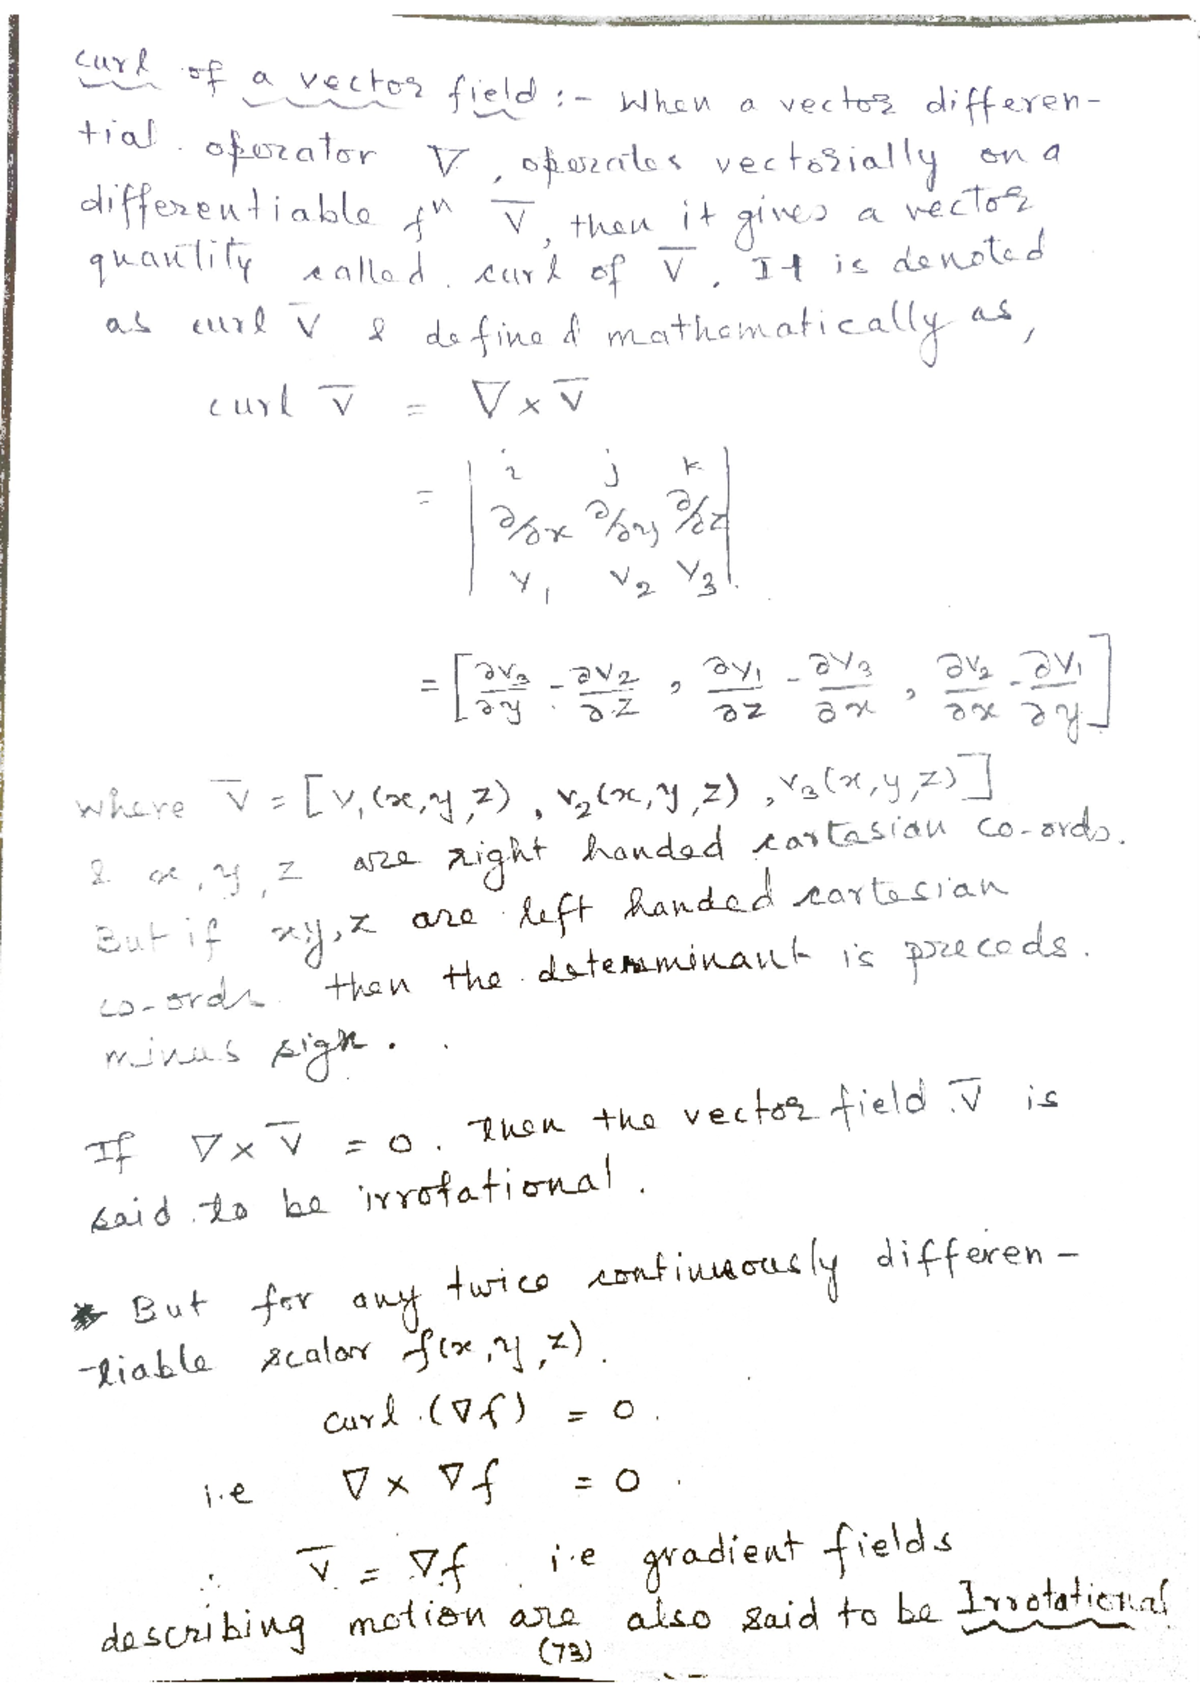 curl of a vector field :- When a vector differen-
tial operator ∇, operates vectorially on a
differentiable fⁿ V̅, then it gives a vector
quantity called curl of V̅. It is denoted
as curl V̅ & defined mathematically as,
curl V̅ = ∇ × V̅
= | i j k
∂/∂x ∂/∂y ∂/∂z
V₁ V₂ V₃ |
= [ ∂V₃/∂y - ∂V₂/∂z , ∂V₁/∂z - ∂V₃/∂x , ∂V₂/∂x - ∂V₁/∂y ]
where V̅ = [V₁(x,y,z), V₂(x,y,z), V₃(x,y,z)]
& x, y, z are right handed cartesian co-ords.
But if x,y,z are left handed cartesian
co-ords. then the determinant is preceds.
minus sign.
If ∇ × V̅ = 0. Then the vector field V̅ is
said to be irrotational.
* But for any twice continuously differen-
-tiable scalar f(x,y,z).
curl (∇f) = 0.
i.e ∇ × ∇f = 0.
∴ V̅ = ∇f i.e gradient fields
describing motion are also said to be Irrotational
(73)